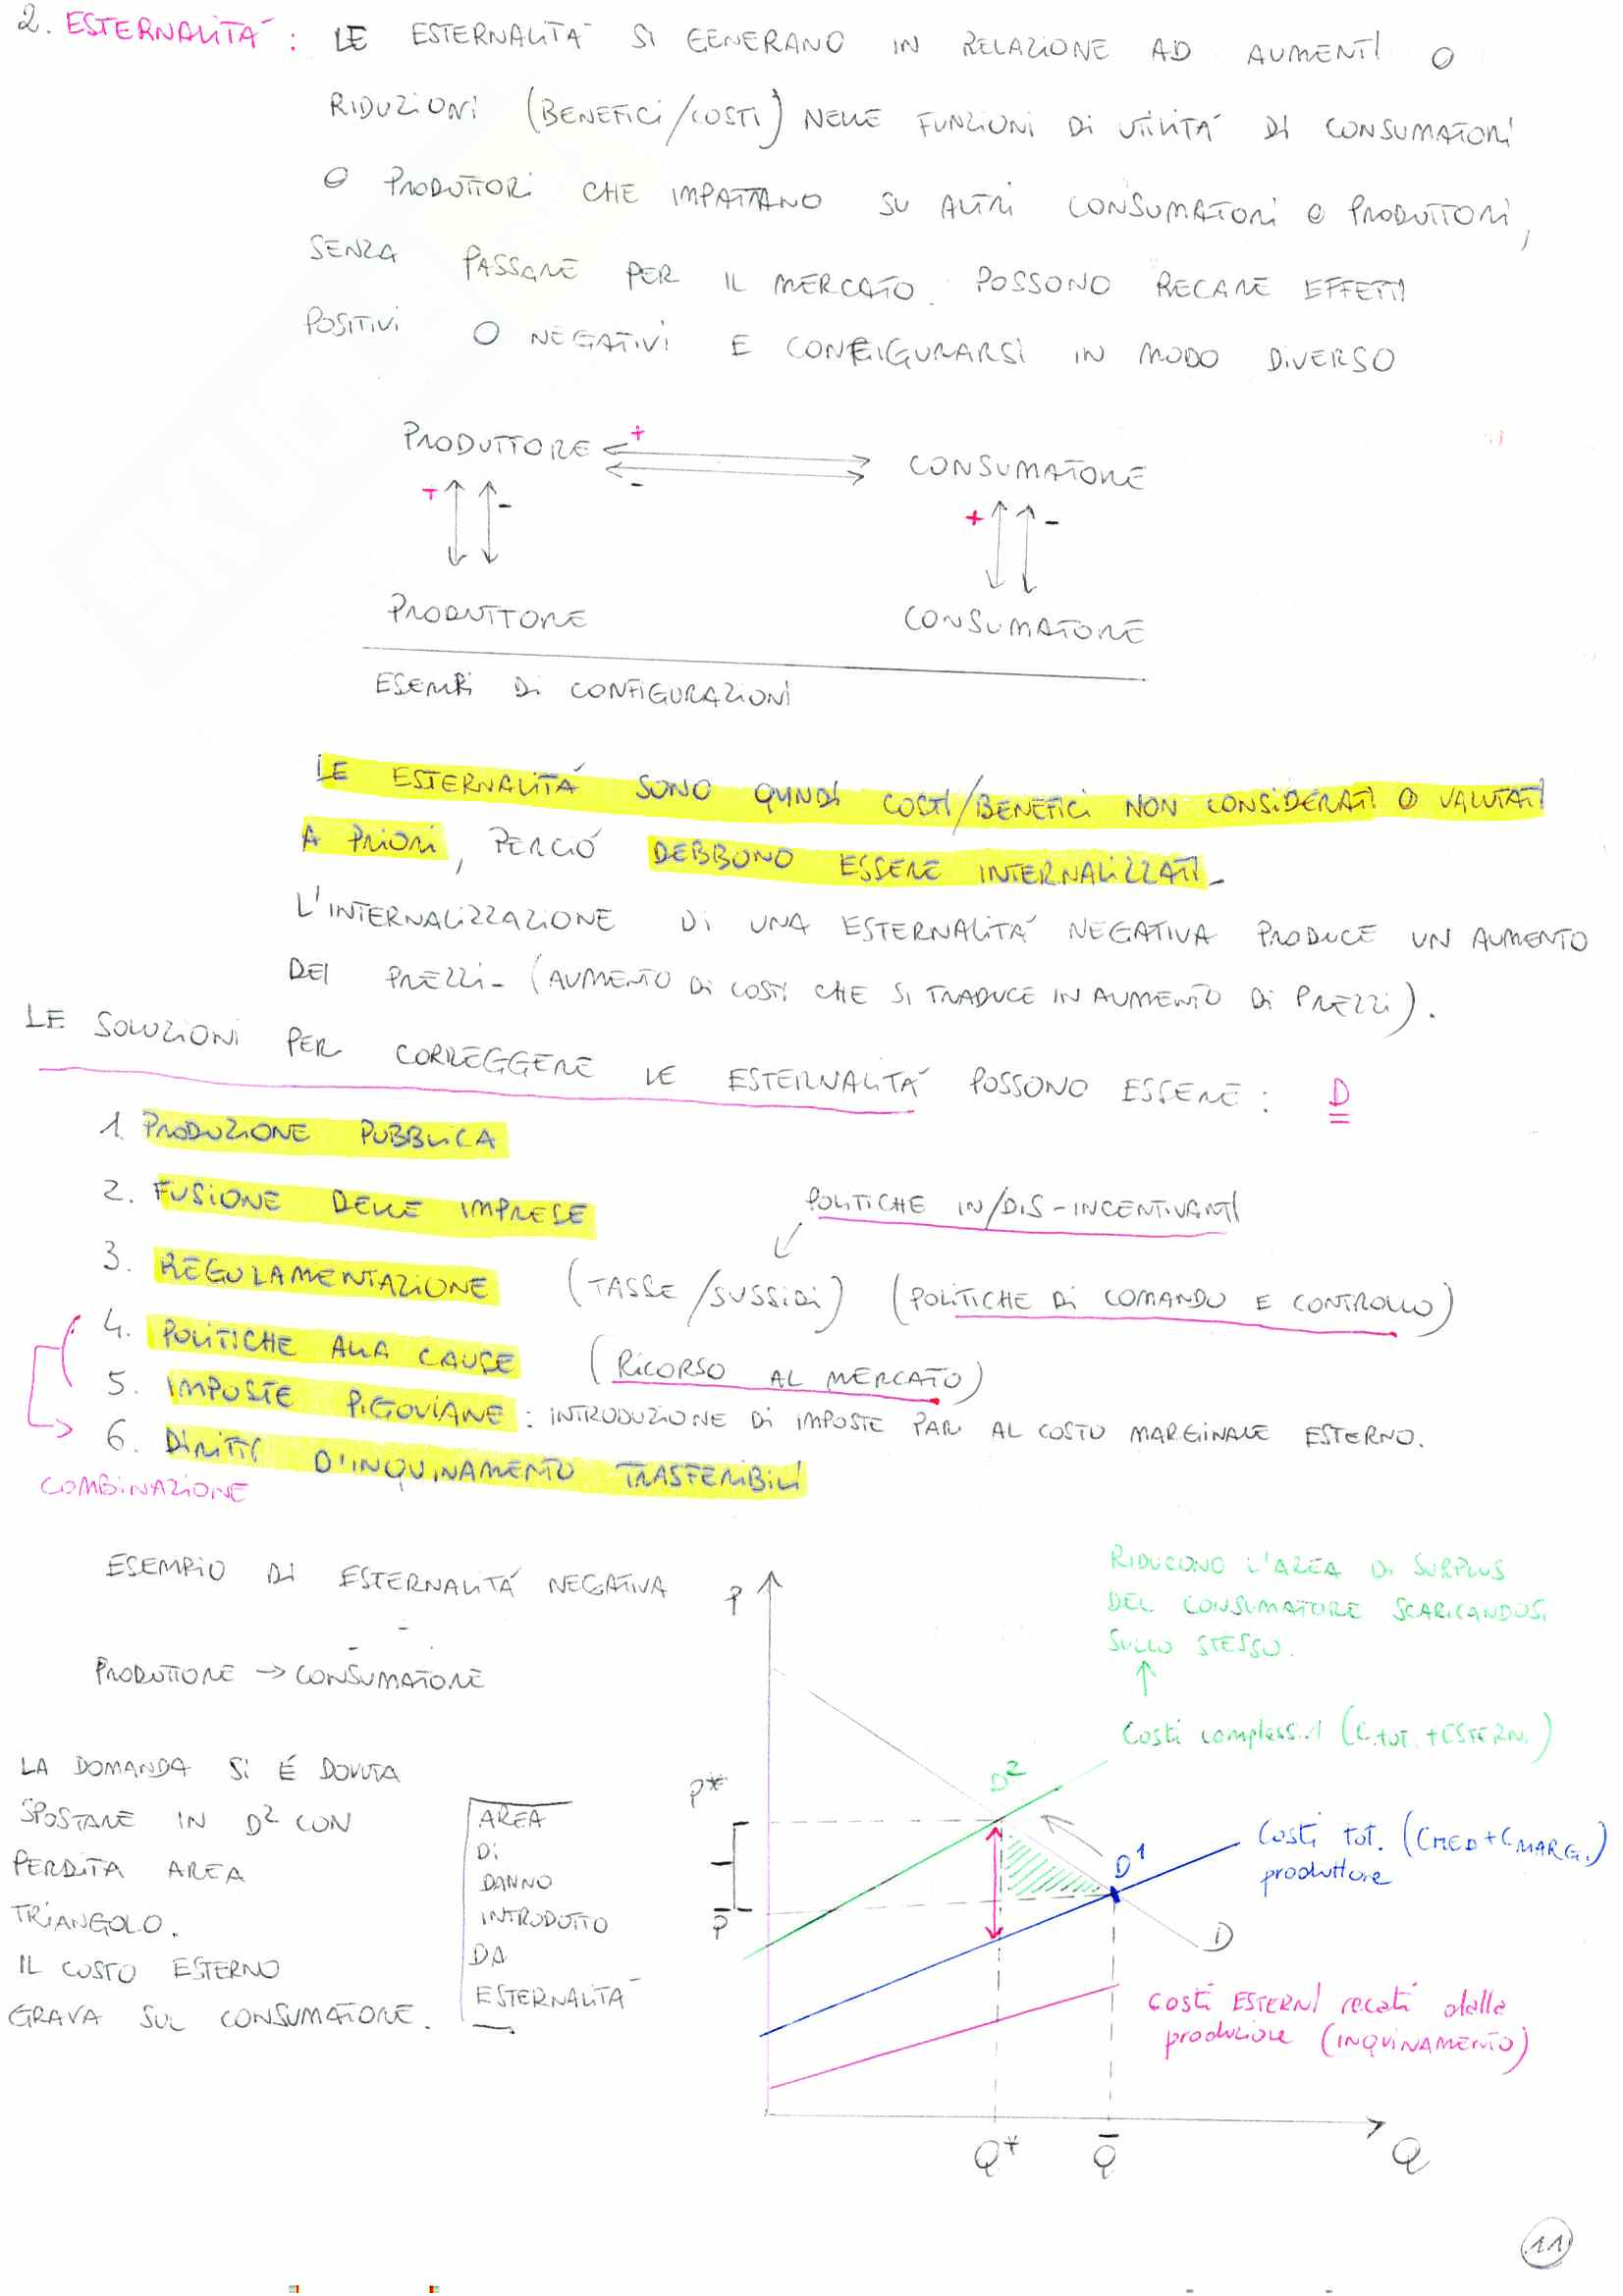 2. ESTERNALITÀ : LE ESTERNALITÀ SI GENERANO IN RELAZIONE AD AUMENTI O
RIDUZIONI (BENEFICI/COSTI) NELLE FUNZIONI DI UTILITÀ DI CONSUMATORI
O PRODUTTORI CHE IMPATTANO SU ALTRI CONSUMATORI O PRODUTTORI,
SENZA PASSARE PER IL MERCATO. POSSONO RECARE EFFETTI
POSITIVI O NEGATIVI E CONFIGURARSI IN MODO DIVERSO
PRODUTTORE + - CONSUMATORE
+ - + -
PRODUTTORE CONSUMATORE
ESEMPI DI CONFIGURAZIONI
LE ESTERNALITÀ SONO QUINDI COSTI/BENEFICI NON CONSIDERATI O VALUTATI
A PRIORI, PERCIÓ DEBBONO ESSERE INTERNALIZZATI.
L'INTERNALIZZAZIONE DI UNA ESTERNALITÀ NEGATIVA PRODUCE UN AUMENTO
DEI PREZZI - (AUMENTO DI COSTI CHE SI TRADUCE IN AUMENTO DI PREZZI).
LE SOLUZIONI PER CORREGGERE LE ESTERNALITÀ POSSONO ESSERE : D
1. PRODUZIONE PUBBLICA
2. FUSIONE DELLE IMPRESE
POLITICHE IN/DIS-INCENTIVANTI
3. REGOLAMENTAZIONE (TASSE/SUSSIDI) (POLITICHE DI COMANDO E CONTROLLO)
4. POLITICHE ALLA CAUSE (RICORSO AL MERCATO)
5. IMPOSTE PIGOVIANE : INTRODUZIONE DI IMPOSTE PARI AL COSTO MARGINALE ESTERNO.
6. DIRITTI D'INQUINAMENTO TRASFERIBILI
COMBINAZIONE
ESEMPIO DI ESTERNALITÁ NEGATIVA
PRODUTTORE → CONSUMATORE
LA DOMANDA SI É DOVUTA
SPOSTARE IN D² CON
PERDITA AREA
TRIANGOLO.
IL COSTO ESTERNO
GRAVA SUL CONSUMATORE.
AREA
DI
DANNO
INTRODOTTO
DA
ESTERNALITÀ
P
RIDUCONO L'AREA DI SURPLUS
DEL CONSUMATORE SCARICANDOSI
SULLO STESSO.
Costi complessivi (C.tot. + ESTERN.)
D²
P*
Costi tot. (CMED+CMARG.)
produttore
D¹
P̄
D
costi ESTERNI recati dalla
produzione (INQUINAMENTO)
Q* Q̄ Q
11